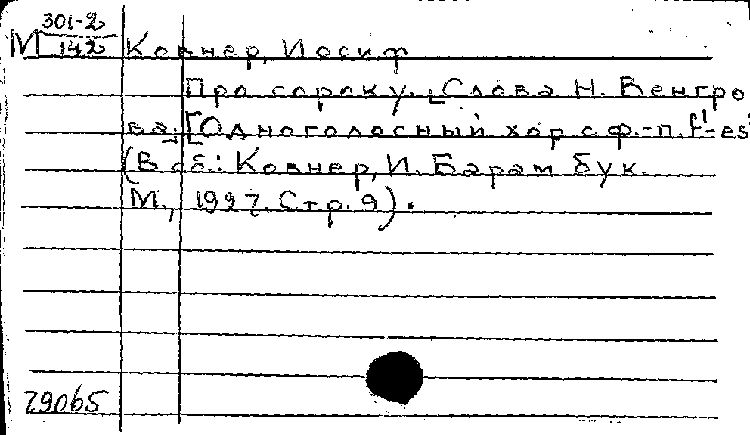 М 301-2
142
Ковнер, Иосиф
Про сороку. [Слова Н. Венгро
ва.] [Одноголосный хор с ф.-п. f¹-es
(В сб.: Ковнер, И. Барам бук.
М., 1927. Стр. 9).
29065